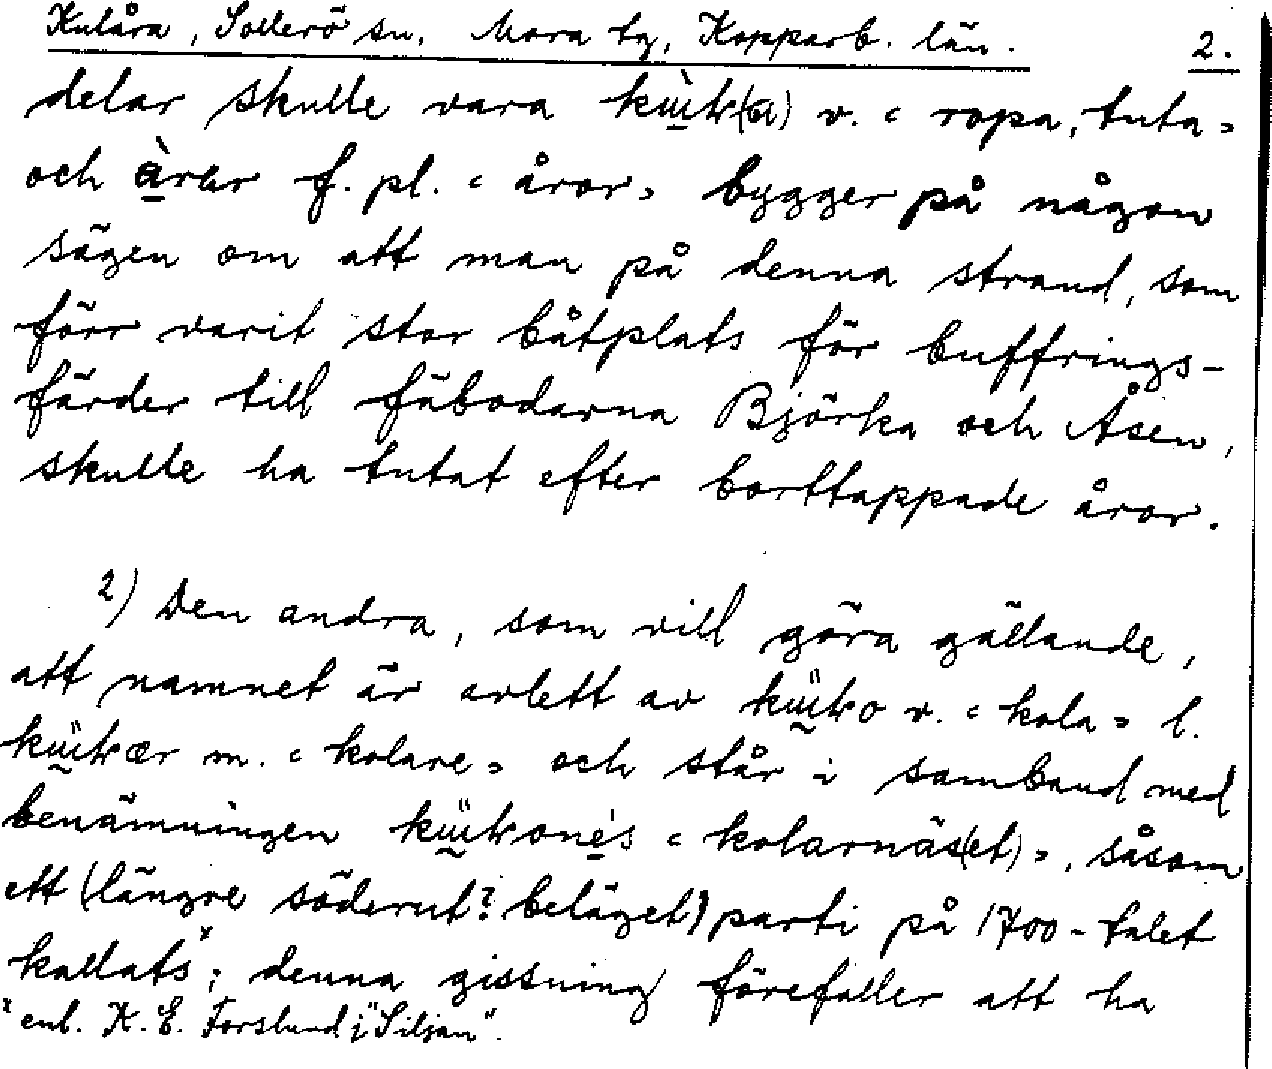 Kulåra, Sollerö sn. Mora tg, Kopparb. län. 2.
delar skulle vara kùtr(a) v. ‹ ropa, tuta›
och àrär f. pl. ‹ åror› bygger på någon
sägen om att man på denna strand, som
förr varit stor båtplats för buffrings-
färder till fäbodarna Björka och Åsen,
skulle ha tutat efter borttappade åror.
2) Den andra, som vill göra gällande,
att namnet är avlett av v. ‹ kola › l.
m. ‹ kolare › och står i samband med
benämningen ‹ kolarnäs(et) ›, såsom
ett (längre söderut? beläget) parti på 1700-talet
kallats x; denna gissning förefaller att ha
x enl. K. E. Forslund i "Siljan".